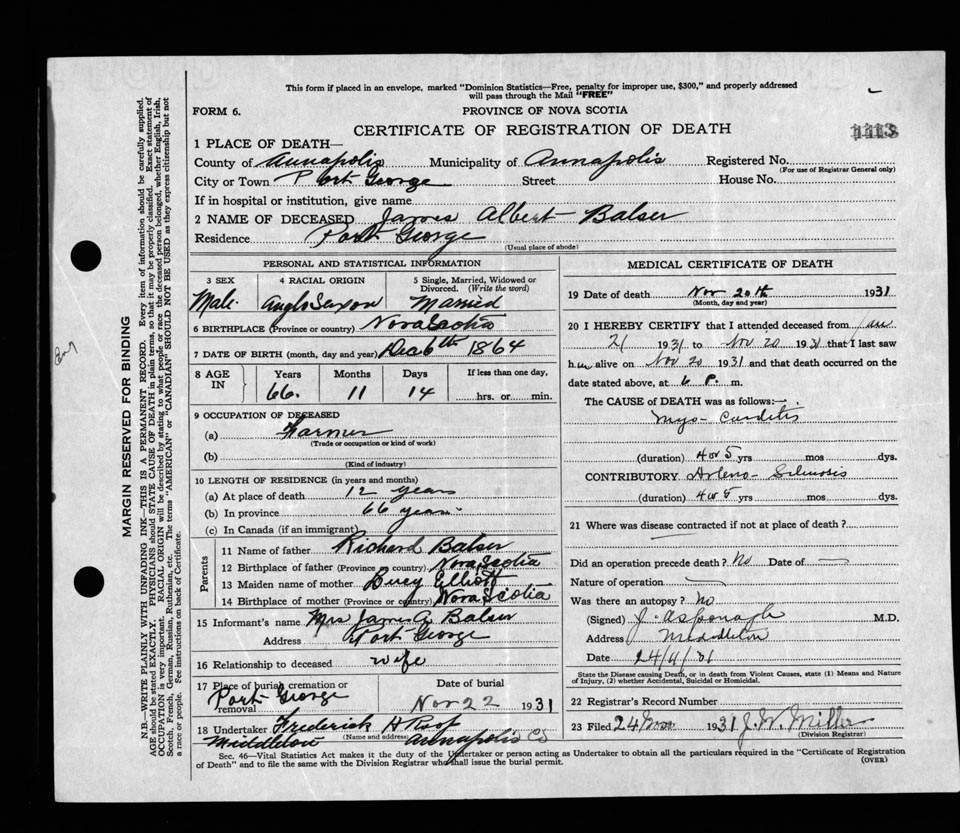 This form if placed in an envelope, marked "Dominion Statistics—Free, penalty for improper use, $300," and properly addressed
will pass through the Mail "FREE"
FORM 6.
PROVINCE OF NOVA SCOTIA
CERTIFICATE OF REGISTRATION OF DEATH
1113
1 PLACE OF DEATH—
County of Annapolis Municipality of Annapolis Registered No.
(For use of Registrar General only)
City or Town Port George Street House No.
If in hospital or institution, give name
2 NAME OF DECEASED James Albert Balser
Residence Port George
(Usual place of abode)
PERSONAL AND STATISTICAL INFORMATION
3 SEX 4 RACIAL ORIGIN 5 Single, Married, Widowed or Divorced. (Write the word)
Male. Anglo Saxon Married
6 BIRTHPLACE (Province or country) Nova Scotia
7 DATE OF BIRTH (month, day and year) Dec 6th 1864
8 AGE IN Years Months Days If less than one day,
66. 11 14 hrs. or min.
9 OCCUPATION OF DECEASED
(a) Farmer
(Trade or occupation or kind of work)
(b)
(Kind of industry)
10 LENGTH OF RESIDENCE (in years and months)
(a) At place of death 12 years
(b) In province 66 years
(c) In Canada (if an immigrant)
Parents
11 Name of father Richard Balser
12 Birthplace of father (Province or country) Nova Scotia
13 Maiden name of mother Lucy Elliott
14 Birthplace of mother (Province or country) Nova Scotia
15 Informant's name Mrs James A Balser
Address Port George
16 Relationship to deceased wife
17 Place of burial cremation or removal Date of burial
Port George Nov 22 1931
18 Undertaker Frederick H
(Name and address)
Middleton Annapolis Co
MEDICAL CERTIFICATE OF DEATH
19 Date of death Nov 20th 1931
(Month, day and year)
20 I HEREBY CERTIFY that I attended deceased from
21 1931 to Nov 20 1931 that I last saw
h im alive on Nov 20 1931 and that death occurred on the
date stated above, at 6 P. m.
The CAUSE of DEATH was as follows:—
Myo- Carditis
(duration) 4 or 5 yrs mos dys.
CONTRIBUTORY Arterio- Sclerosis
(duration) 4 or 5 yrs mos dys.
21 Where was disease contracted if not at place of death?
Did an operation precede death? No Date of
Nature of operation
Was there an autopsy? No
(Signed) J. M.D.
Address Middleton
Date 24/11/31
State the Disease causing Death, or in death from Violent Causes, state (1) Means and Nature
of Injury, (2) whether Accidental, Suicidal or Homicidal.
22 Registrar's Record Number
23 Filed 24 Nov 1931 J. W. Miller
(Division Registrar)
Sec. 46—Vital Statistics Act makes it the duty of the Undertaker or person acting as Undertaker to obtain all the particulars required in the "Certificate of Registration
of Death" and to file the same with the Division Registrar who shall issue the burial permit.
(OVER)
MARGIN RESERVED FOR BINDING
N.B.—WRITE PLAINLY WITH UNFADING INK—THIS IS A PERMANENT RECORD. Every item of information should be carefully supplied.
AGE should be stated EXACTLY. PHYSICIANS should STATE CAUSE OF DEATH in plain terms, so that it may be properly classified. Exact statement of
OCCUPATION is very important. RACIAL ORIGIN will be described by stating to what people or race the deceased person belonged, whether English, Irish,
Scotch, French, German, Russian, Ruthenian, etc. The terms "AMERICAN" or "CANADIAN" SHOULD NOT BE USED as they express citizenship but not
a race or people. See instructions on back of Certificate.